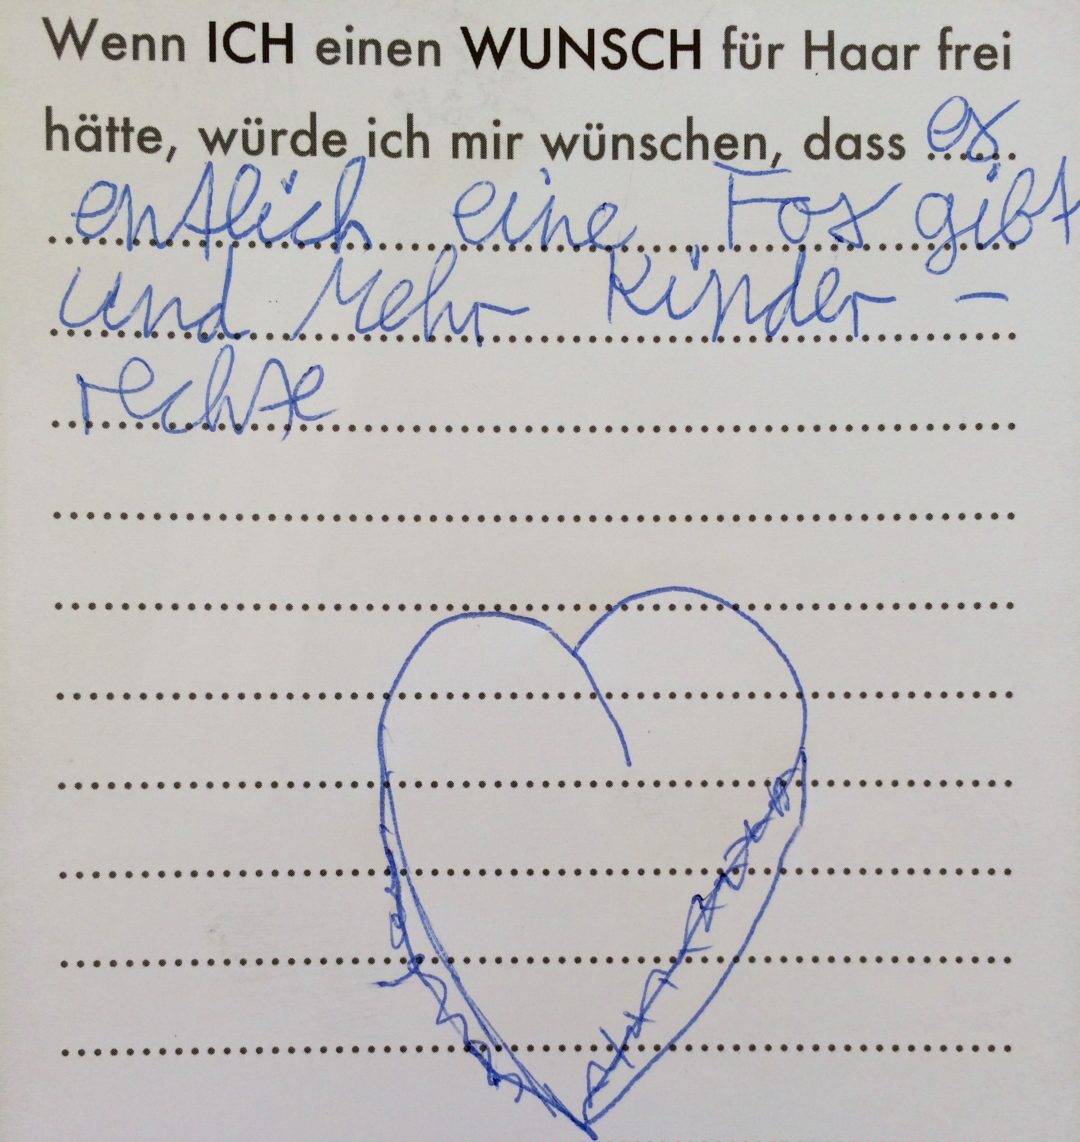 Wenn ICH einen WUNSCH für Haar frei
hätte, würde ich mir wünschen, dass es
entlich eine Fos gibt
und mehr Kinder-
rechte